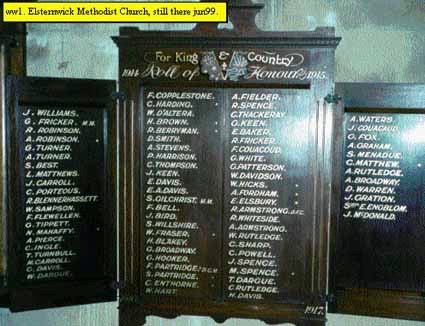 ww1. Elsternwick Methodist Church, still there jun99.
For King & Country
1914 Roll of Honour. 1915.
J. WILLIAMS.
G. FRICKER. M.M.
R. ROBINSON.
A. ROBINSON.
G. TURNER.
A. TURNER.
S. BEST.
L. MATTHEWS.
J. CARROLL.
C. PORTEOUS.
R. BLENNERHASSETT.
W. SAMPSON.
F. LLEWELLEN.
G. TIPPETT.
N. MAHAFFY.
A. PIERCE.
C. INGLE.
T. TURNBULL.
M. CARROLL.
G. DAVIS.
W. DARGUE.
F. COPPLESTONE.
C. HARDING.
W. D'ALTERA.
H. BROWN.
R. BERRYMAN.
D. SMITH.
A. STEVENS.
P. HARRISON.
C. THOMPSON.
J. KEEN.
E. DAVIS.
E. A. DAVIS.
S. GILCHRIST. M.M.
F. BELL.
J. BIRD.
S. WILLSHIRE.
W. FRASER
H. BLAKEY.
G. BROADWAY.
G. HOOKER.
F. PARTRIDGE.
S. PARTRIDGE.
C. ENTHORNE.
W. HART.
A. FIELDER.
R. SPENCE.
C. THACKERAY.
G. KEEN.
E. BAKER.
R. FRICKER.
F. COUACOUD.
G. WHITE.
G. PATTERSON.
W. DAVIDSON.
W. HICKS.
A. FORDHAM.
E. ELSBURY.
R. ARMSTRONG.
R. WHITESIDE.
A. ARMSTRONG.
W. RUTLEDGE.
C. SHARP.
C. POWELL.
J. SPENCE.
M. SPENCE.
T. DARGUE.
C. RUTLEDGE.
H. DAVIS.
1917.
A. WATERS.
J. COUACAUD.
G. FOX.
A. GRAHAM.
S. MENADUE.
C. MATTHEW.
A. RUTLEDGE.
A. BROADWAY.
D. WARREN.
J. GRATION.
E. ENGBLOM.
J. McDONALD.